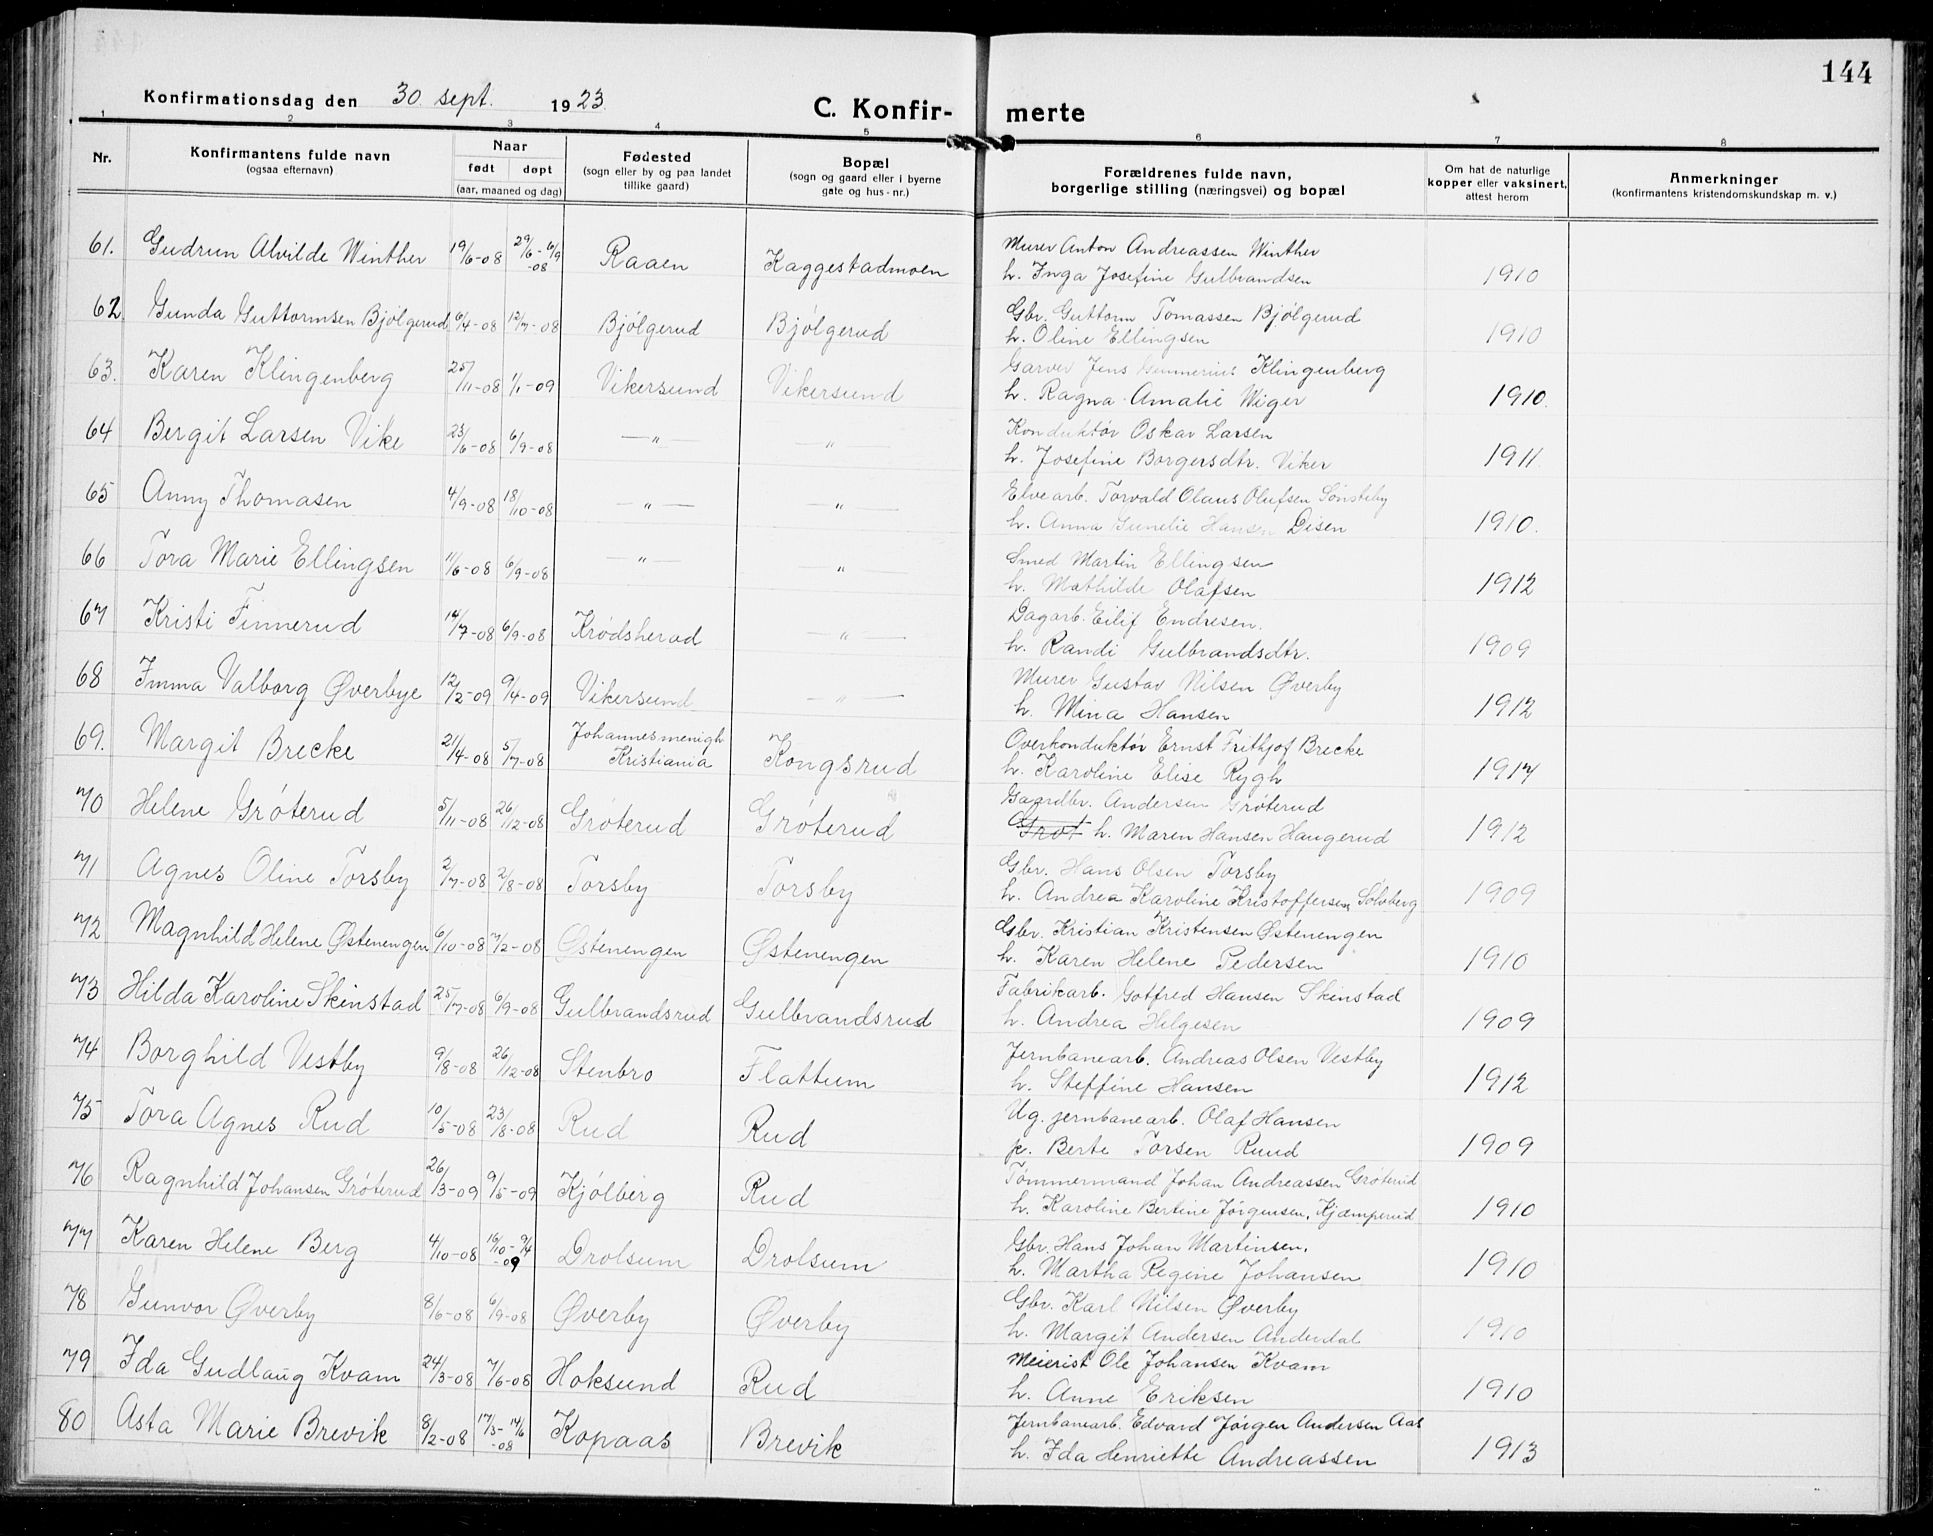 144
Konfirmationsdag den 30. sept. 1923
C. Konfir- merte
1 2 3 4 5 6 7 8
Nr.
Konfirmantens fulde navn
(ogsaa efternavn)
Naar
født døpt
(aar, maaned og dag)
Fødested
(sogn eller by og paa landet
tillike gaard)
Bopæl
(sogn og gaard eller i byerne
gate og hus-nr.)
Forældrenes fulde navn,
borgerlige stilling (næringsvei) og bopæl
Om hat de naturlige
kopper eller vaksinert,
attest herom
Anmerkninger
(konfirmantens kristendomskundskap m. v.)
61. Gudrun Alvilde Winther 19/6-08 29/6-6/9-08 Raaen Kaggestadmoen Murer Anton Andreassen Winther
h. Inga Josefine Gulbrandsen 1910
62 Gunda Guttormsen Bjølgerud 6/4-08 12/7-08 Bjølgerud Bjølgerud Gbr. Guttorm Tomassen Bjølgerud
h. Oline Ellingsen 1910
63. Karen Klingenberg 25/11-08 1/1-09 Vikersund Vikersund Garver Jens Gunnerius Klingenberg
h. Ragna Amalie Wiger 1910.
64 Bergit Larsen Vike 23/6-08 6/9-08 —"— " Konduktør Oskar Larsen
h. Josefine Borgersdtr. Viker 1911
65 Anny Thomasen 4/9-08 18/10-08 —"— —"— Elvearb. Torvald Olaus Olufsen Sønsteby
h. Anna Gunelie Hansen Disen 1910.
66 Tora Marie Ellingsen 11/6-08 6/9-08 —"— " Smed Martin Ellingsen
h. Mathilde Olafsen 1912
67 Kristi Finnerud 14/7-08 6/9-08 Krødsherad —"— Dagarb. Eilif Endresen.
h. Randi Gulbrandsdtr. 1909
68 Imma Valborg Øverbye 12/2-09 9/4-09 Vikersund —"— Murer Gustav Nilsen Øverby
h. Mina Hansen 1912
69. Margit Brecke 21/4-08 5/7-08 Johannesmenigh Kristiania Kongsrud Overkonduktør Ernst Frithjof Brecke
h. Karoline Elise Rygh 1917
70 Helene Grøterud 5/11-08 26/12-08 Grøterud Grøterud Gaardbr. Andersen Grøterud
Grøt h. Maren Hansen Haugerud 1912
71 Agnes Oline Torsby 2/7-08 2/8-08 Torsby Torsby Gbr. Hans Olsen Torsby
h. Andrea Karoline Kristoffersen Solvberg 1909
72 Magnhild Helene Østenengen 6/10-08 7/2-08 Østenengen Østenengen Gbr. Kristian Kristensen Østenengen
h. Karen Helene Pedersen 1910
73 Hilda Karoline Skinstad 25/7-08 6/9-08 Gulbrandsrud Gulbrandsrud Fabrikarb. Gotfred Hansen Skinstad
h. Andrea Helgesen 1909
74 Borghild Vestby 9/8-08 26/12-08 Stenbro Flattum Jernbanearb. Andreas Olsen Vestby
h. Steffine Hansen 1912
75 Tora Agnes Rud 10/5-08 23/8-08 Rud Rud Ug. jernbanearb. Olaf Hansen
p. Berte Torsen Ruud 1909
76 Ragnhild Johansen Grøterud 26/3-09 9/5-09 Kjølberg Rud Tømmermand Johan Andreassen Grøterud
h. Karoline Bertine Jørgensen, Kjæmperud 1910
77 Karen Helene Berg 4/10-08 16/10-9/4-09 Drolsum Drolsum Gbr. Hans Johan Martinsen.
h. Martha Regine Johansen 1910
78 Gunvor Øverby 8/6-08 6/9-08 Øverby Øverby Gbr. Karl Nilsen Øverby
h. Margit Andersen Anderdal 1910
79 Ida Gudlaug Kvam 24/3-08 7/6-08 Hoksund Rud Meierist Ole Johansen Kvam
h. Anne Eriksen 1910
80 Asta Marie Brevik 8/2-08 17/3-14/6-08 Kopaas Brevik Jernbanearb. Edvard Jørgen Andersen Aas
h. Ida Henriette Andreassen 1913